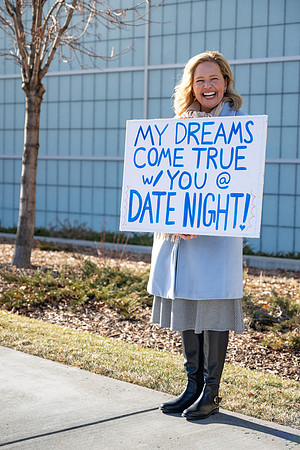 MY DREAMS
COME TRUE
w/ YOU @
DATE NIGHT!